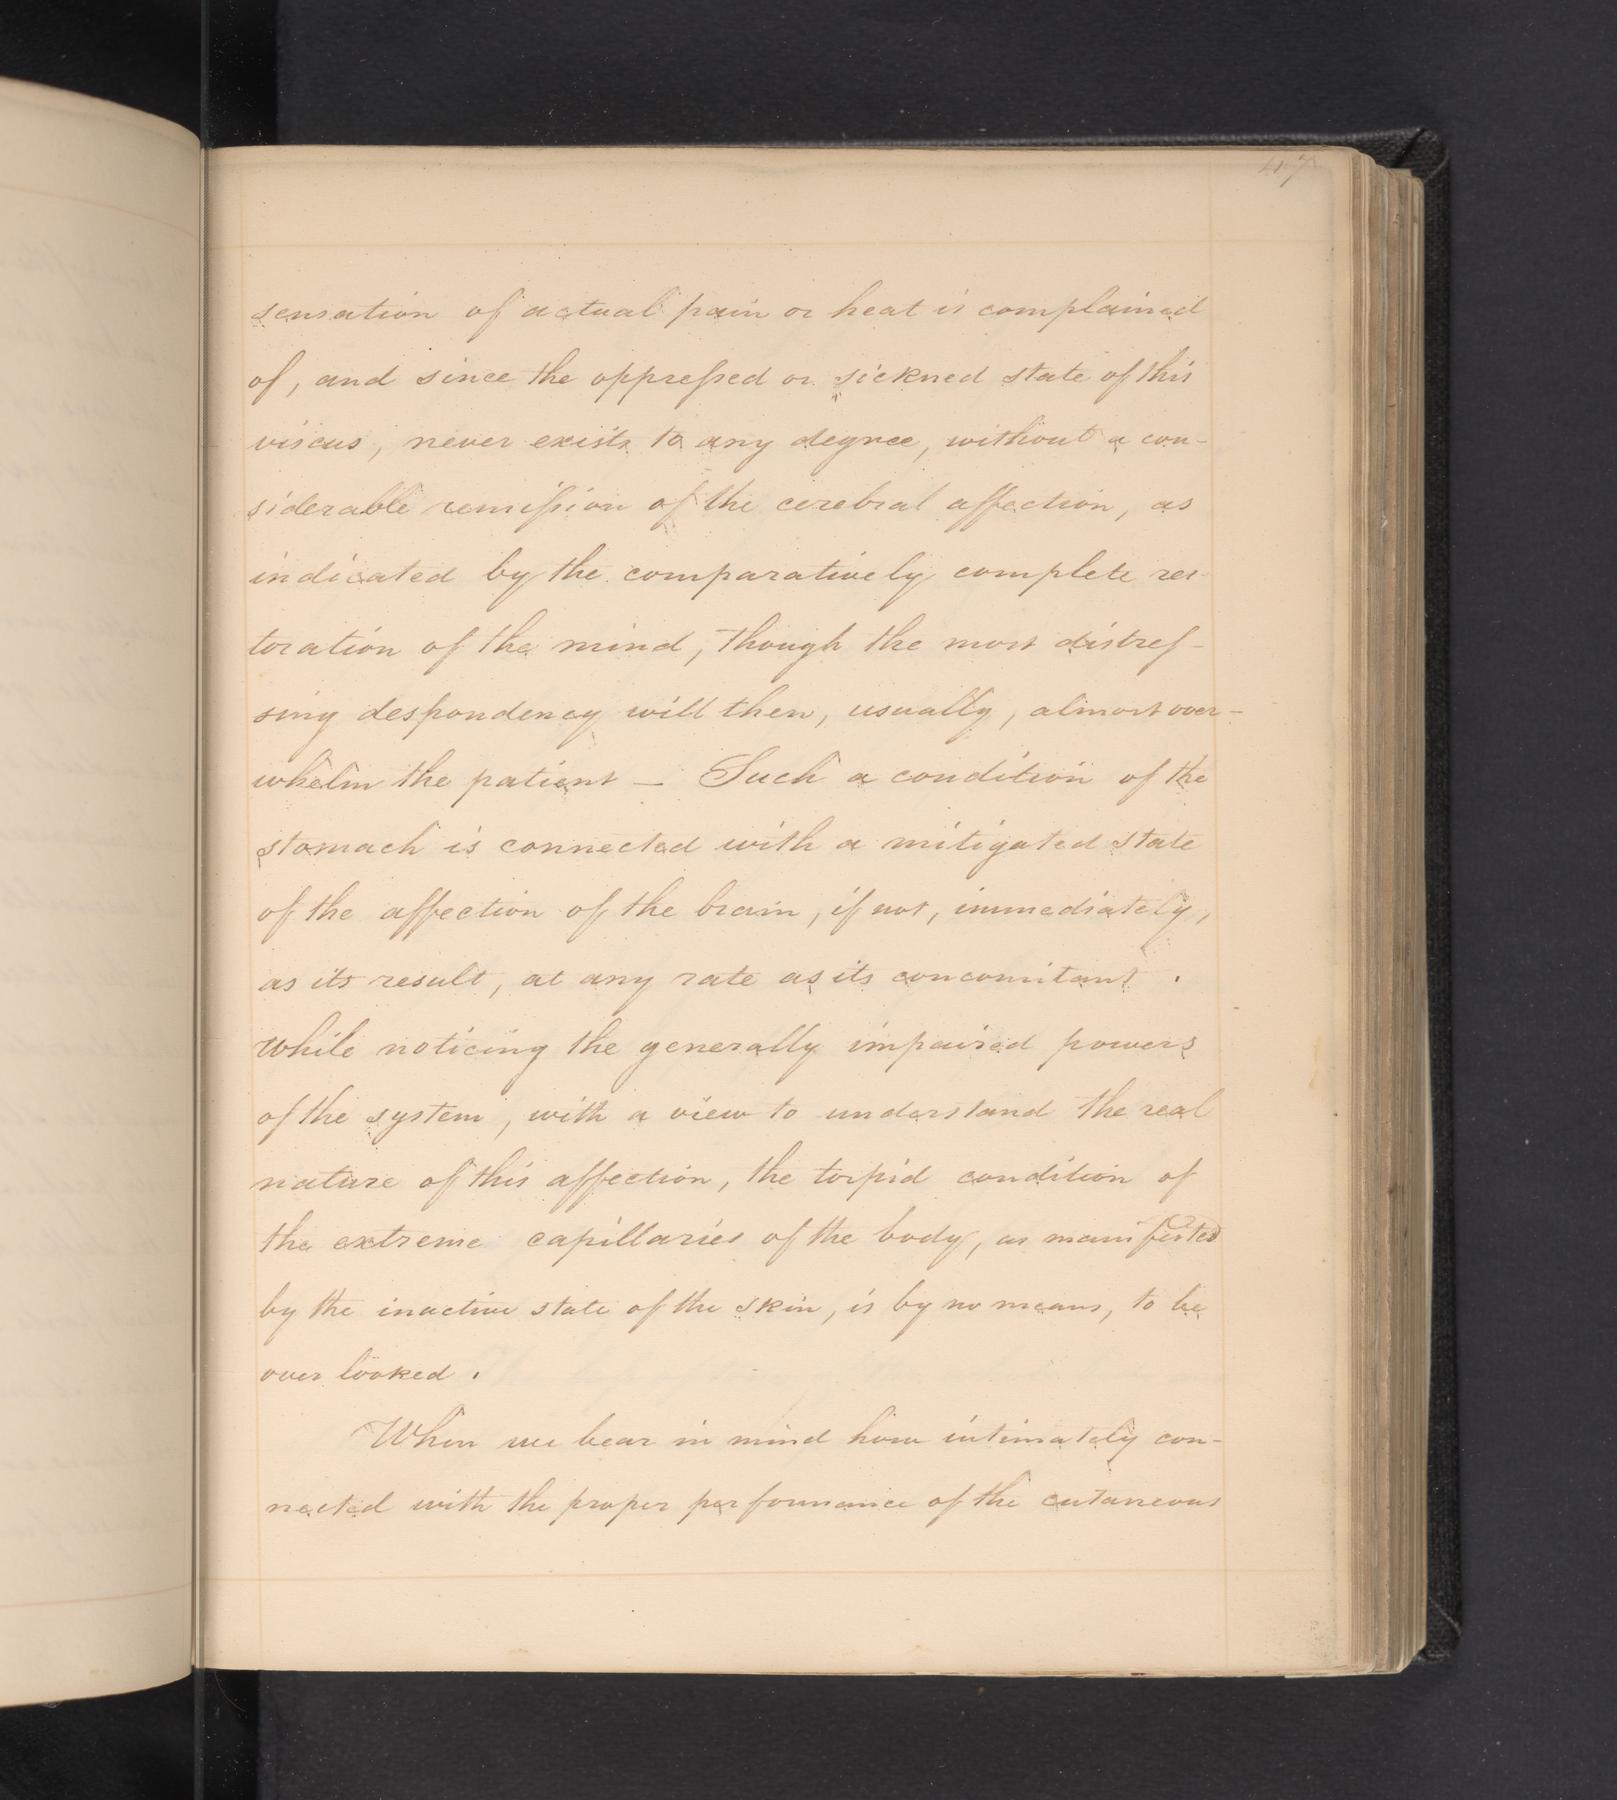 47
sensation of actual pain or heat is complained
of, and since the oppressed or sickned state of this
viscus, never exists to any degree, without a con-
siderable remission of the cerebral affection, as
indicated by the comparatively complete res-
toration of the mind, though the most distres-
sing despondency will then, usually, almost over-
whelm the patient — Such a condition of the
stomach is connected with a mitigated state
of the affection of the brain, if not, immediately,
as its result, at any rate as its concomitant.
While noticing the generally impaired powers
of the system, with a view to understand the real
nature of this affection, the torpid condition of
the extreme capillaries of the body, as manifested
by the inactive state of the skin, is by no means, to be
over looked.
When we bear in mind how intimately con-
nected with the proper performance of the cutaneous